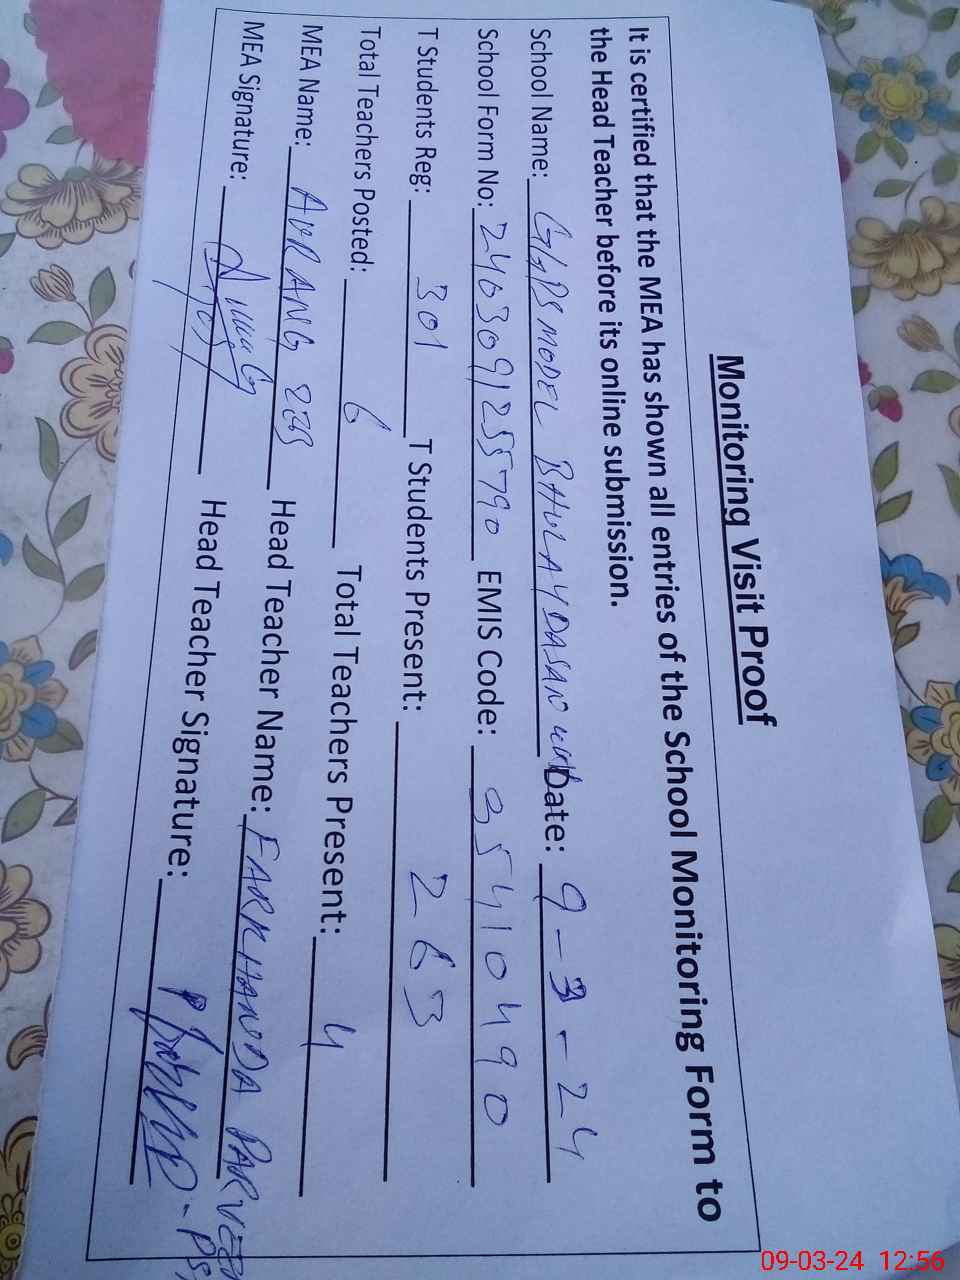 Monitoring Visit Proof
It is certified that the MEA has shown all entries of the School Monitoring Form to
the Head Teacher before its online submission.
School Name: GGPS MODEL BHULAYDASAN Date: 9-3-24
School Form No: 2403091255790 EMIS Code: 35410490
T Students Reg: 301 T Students Present: 263
Total Teachers Posted: 6 Total Teachers Present: 4
MEA Name: AURANG ZEB Head Teacher Name: FARKHANDA PARVEEN
MEA Signature: Head Teacher Signature:
09-03-24 12:56